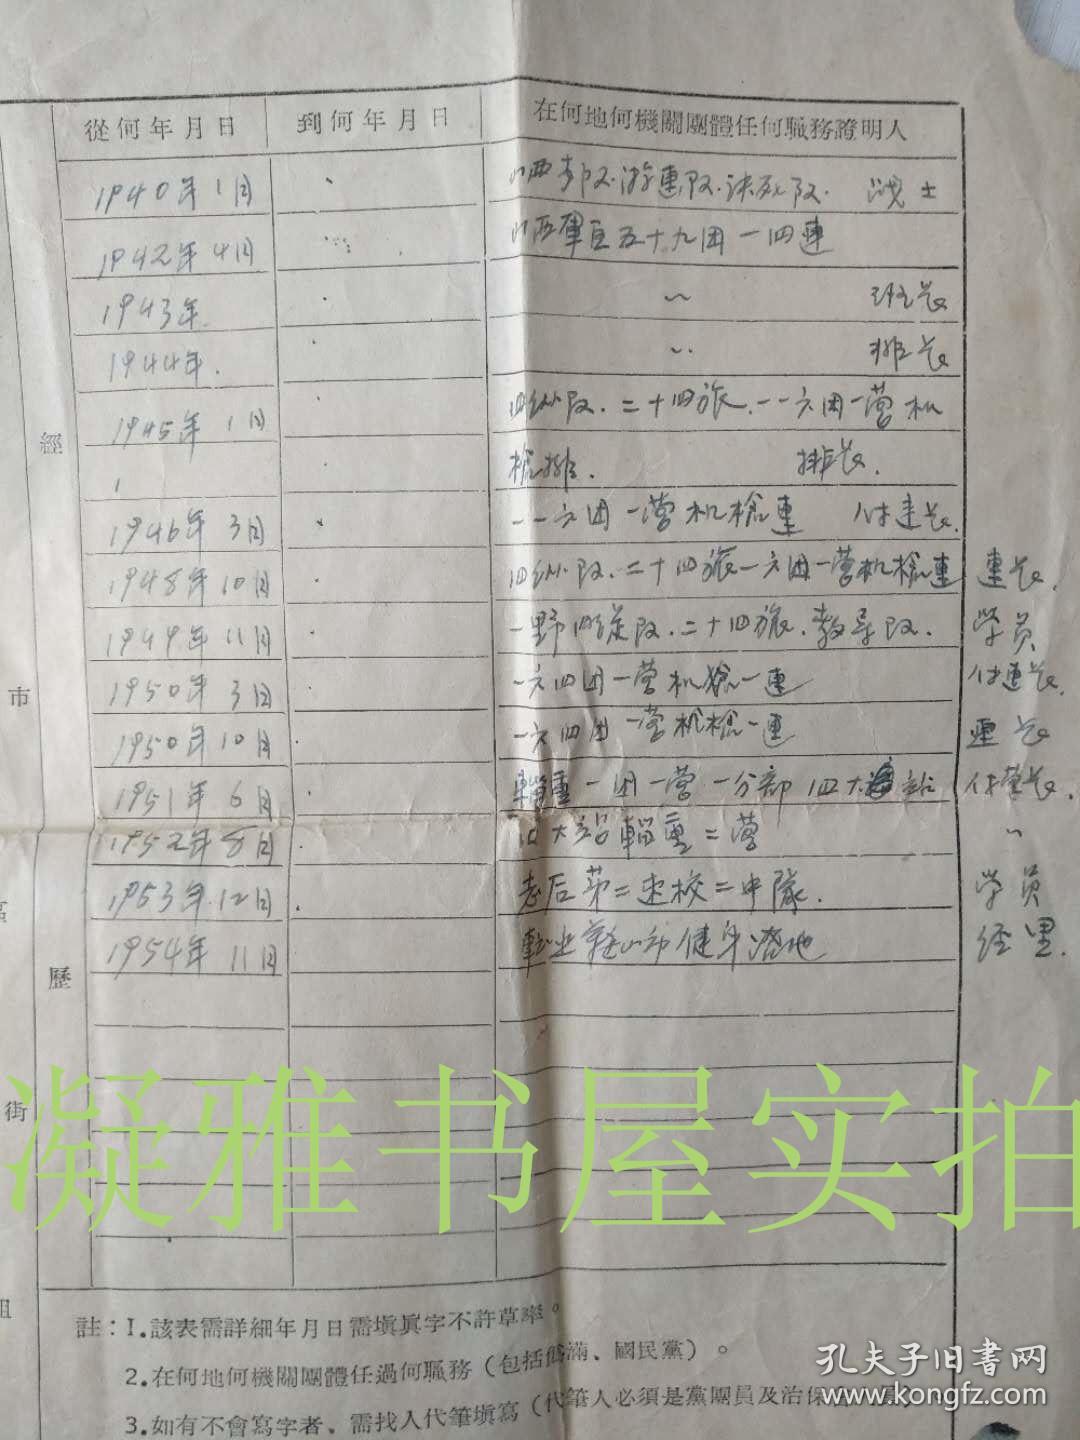 從何年月日 到何年月日 在何地何機關團體任何職務證明人
1940年1月 山西 队.游连队.决死队. 战士
1942年4月 山西軍区五十九团一四連
1943年. 〃 班长
1944年. 〃 排长
1945年1月 四纵队.二十四旅.一一六团一营机
枪排. 排长.
1946年3月 一一六团一营机槍連 付連长.
1948年10月 四纵队.二十四旅一六团一营机槍連 連长.
1949年11月 一野四纵队.二十四旅.教导队. 学员
1950年3月 一六四团一营机槍一連 付連长.
1950年10月 一六四团一营机槍一連 連长
1951年6月 輜重一团一营一分部四大站 付营长.
1952年8月 四大站輜重二营 〃
1953年12月 志后第二速校二中隊. 学员
1954年11月 転业鞍山市健身浴池 经理.
經
歷
市
區
街
組
註：1.該表需詳細年月日需填眞字不許草率。
2.在何地何機關團體任過何職務（包括僞滿、國民黨）。
3.如有不會寫字者、需找人代筆填寫（代筆人必須是黨團員及治保
凝雅书屋实拍
孔夫子旧書网
www.kongfz.com